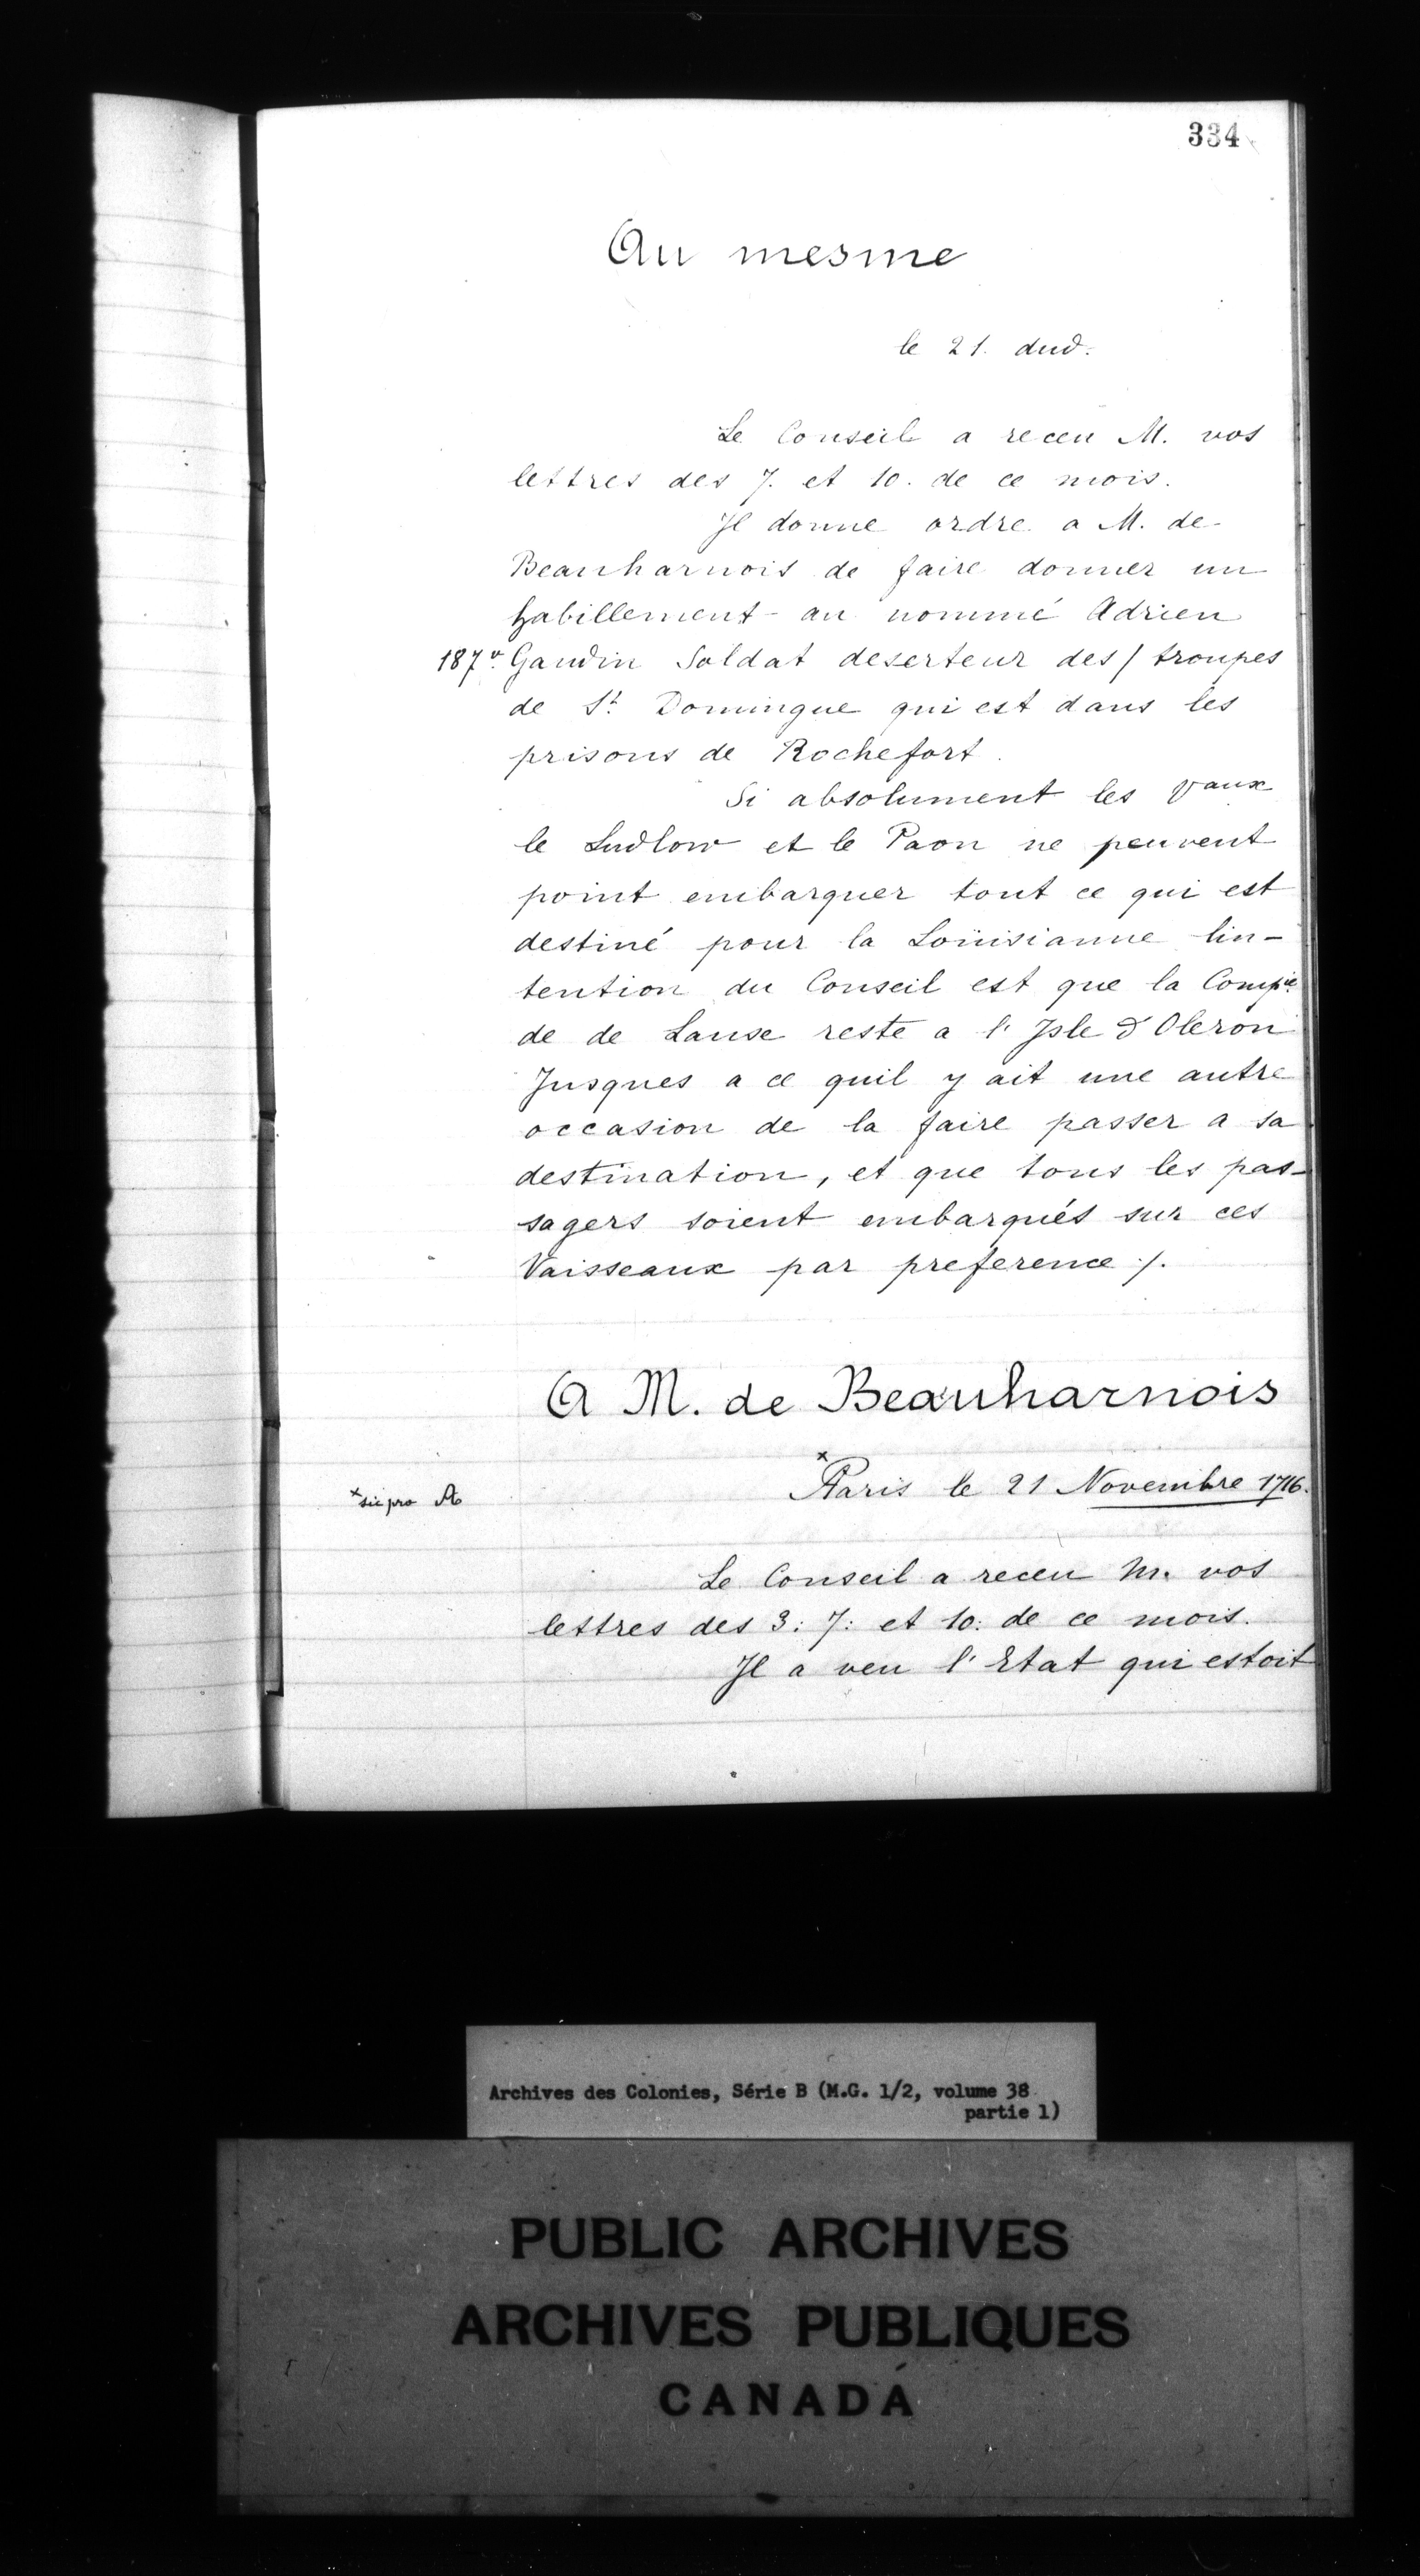 334
Au mesme
le 21. dud.
Le Conseil a receu M. vos
lettres des 7. et 10. de ce mois.
Il donne ordre a M. de
Beauharnois de faire donner un
habillement au nommé Adrien
187 v. Gaudin Soldat deserteur des / troupes
de St. Domingue qui est dans les
prisons de Rochefort.
Si absolument les Vaux
le Ludlow et le Paon ne peuvent
point embarquer tout ce qui est
destiné pour la Loüisianne lin-
tention du Conseil est que la Compie.
de de Lause reste a l'Isle d'Oleron
Jusques a ce quil y ait une autre
occasion de la faire passer a sa
destination, et que tous les pas-
sagers soient embarqués sur ces
Vaisseaux par preference ./.
A M. de Beauharnois
x
Paris le 21 Novembre 1716.
x sic pro A
Le Conseil a receu M. vos
lettres des 3: 7: et 10: de ce mois.
Il a veu l'Etat qui estoit
Archives des Colonies, Série B (M.G. 1/2, volume 38
partie 1)
PUBLIC ARCHIVES
ARCHIVES PUBLIQUES
CANADA